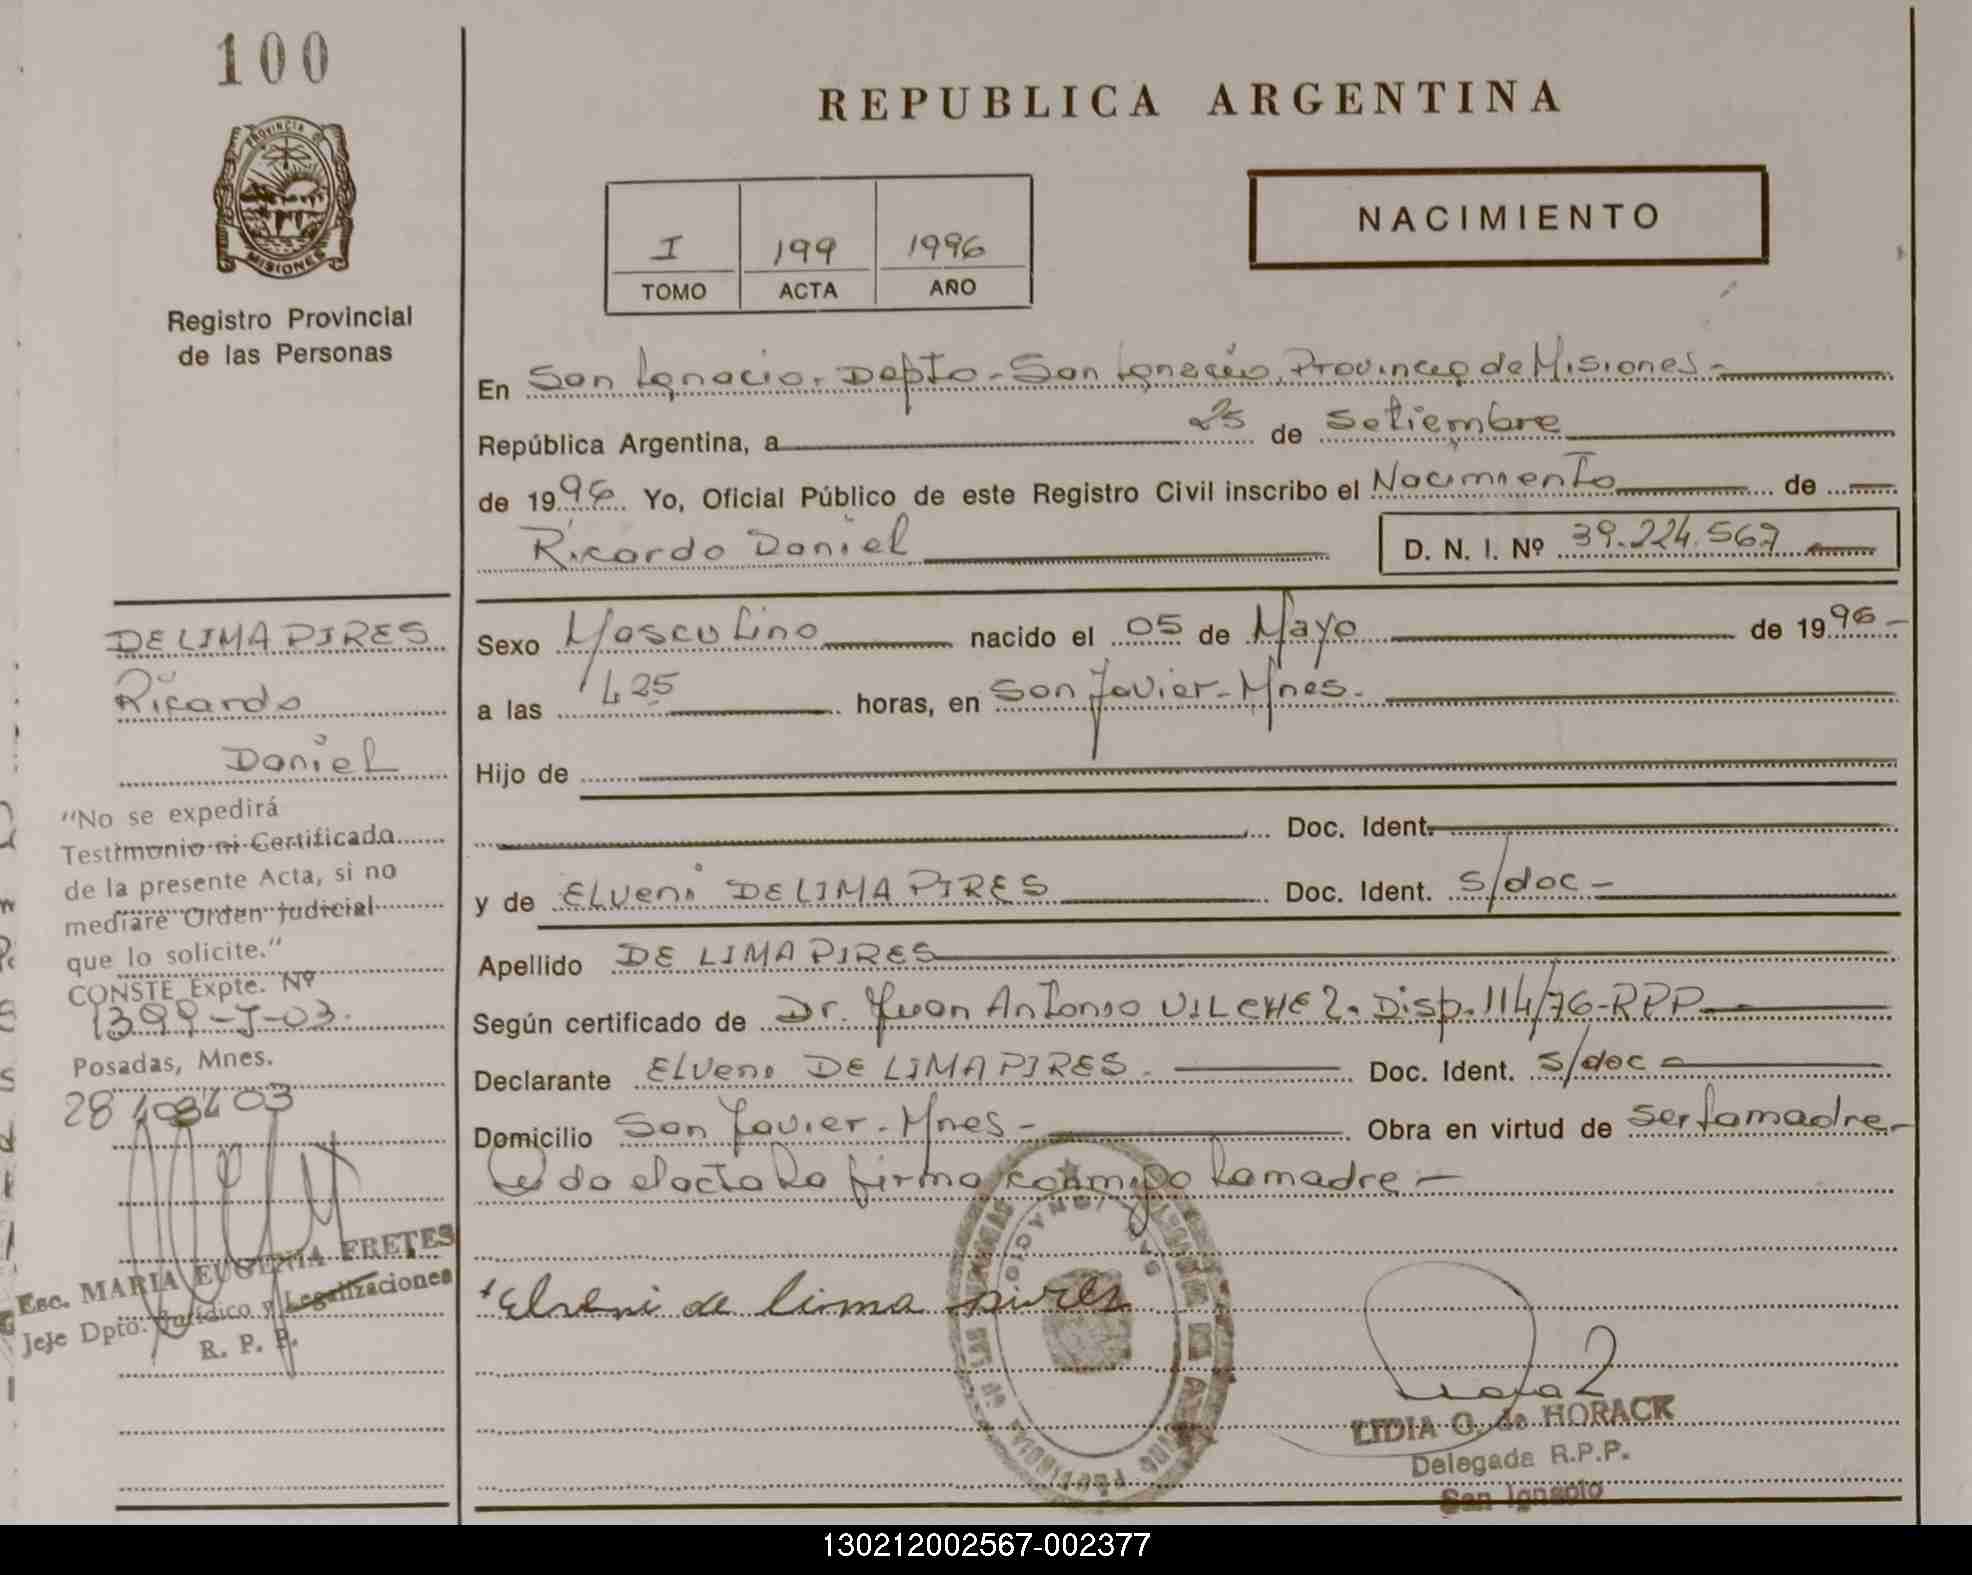 100
REPUBLICA ARGENTINA
PROVINCIA DE
MISIONES
Registro Provincial
de las Personas
I 199 1996
TOMO ACTA AÑO
NACIMIENTO
En San Ignacio. Depto - San Ignacio, Provincia de Misiones -
República Argentina, a 25 de Setiembre
de 1996 Yo, Oficial Público de este Registro Civil inscribo el Nacimiento de
Ricardo Daniel D. N. I. Nº 39.224.567
Sexo Masculino nacido el 05 de Mayo de 1996 -
a las 4,25 horas, en San Javier - Mnes.
Hijo de
Doc. Ident.
y de ELVeni DE LIMA PIRES Doc. Ident. S/doc -
Apellido DE LIMA PIRES
Según certificado de Dr. Juan Antonio VILCHEZ. Disp. 114/76-RPP
Declarante ELVeni DE LIMA PIRES. Doc. Ident. S/doc -
Domicilio San Javier - Mnes - Obra en virtud de ser la madre -
Leida el acta la firma conmigo la madre -
Elveni de lima pires
LIDIA G. de HORACK
Delegada R.P.P.
San Ignacio
DE LIMA PIRES
Ricardo
Daniel
"No se expedirá
Testimonio ni Certificado
de la presente Acta, si no
mediare Orden Judicial
que lo solicite."
CONSTE Expte. Nº
1399-J-03.
Posadas, Mnes.
28
03
Esc. MARIA EUGENIA FRETES
Jefe Dpto. Jurídico y Legalizaciones
R. P. P.
SAN IGNACIO
130212002567-002377